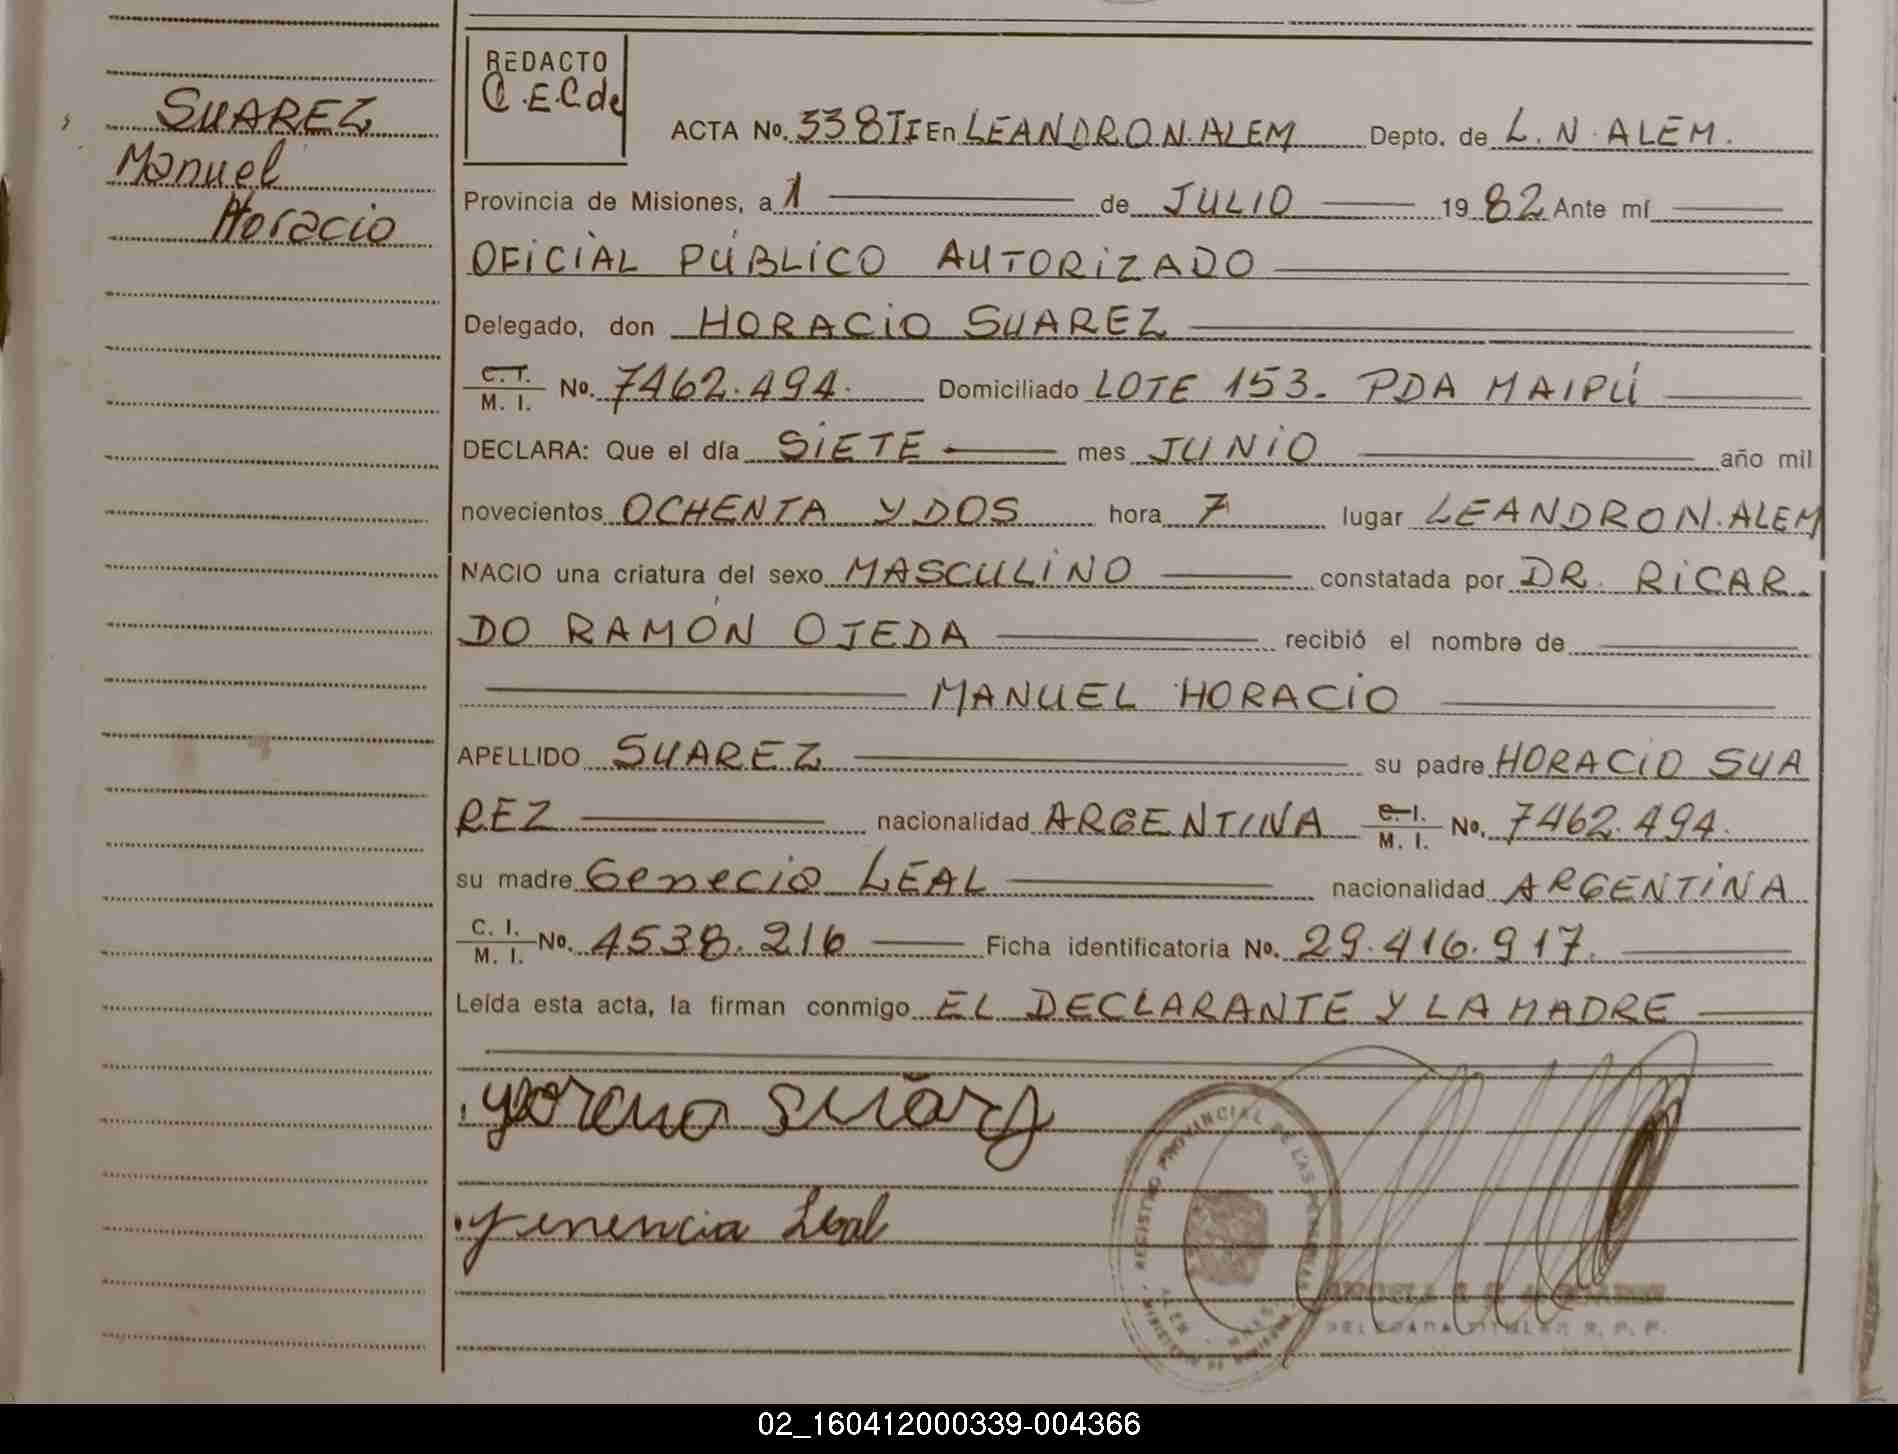 SUAREZ
Manuel
Horacio
REDACTO
C.E.C de
ACTA No. 338 II En LEANDRO N. ALEM Depto. de L. N. ALEM.
Provincia de Misiones, a 1 de JULIO 19 82 Ante mí
OFICIAL PÚBLICO AUTORIZADO
Delegado, don HORACIO SUAREZ
C. I. M. I. No. 7462.494. Domiciliado LOTE 153. PDA MAIPÚ
DECLARA: Que el día SIETE mes JUNIO año mil
novecientos OCHENTA Y DOS hora 7 lugar LEANDRO N. ALEM
NACIO una criatura del sexo MASCULINO constatada por DR. RICAR-
DO RAMÓN OJEDA recibió el nombre de
MANUEL HORACIO
APELLIDO SUAREZ su padre HORACIO SUA
REZ nacionalidad ARGENTINA C. I. M. I. No. 7462.494.
su madre Genecia LEAL nacionalidad ARGENTINA
C. I. M. I. No. 4538.216 Ficha identificatoria No. 29.416.917.
Leída esta acta, la firman conmigo EL DECLARANTE Y LA MADRE
REGISTRO PROVINCIAL DE LAS PERSONAS
Genencia Leal
DELEGADA TITULAR R. P. P.
02_160412000339-004366